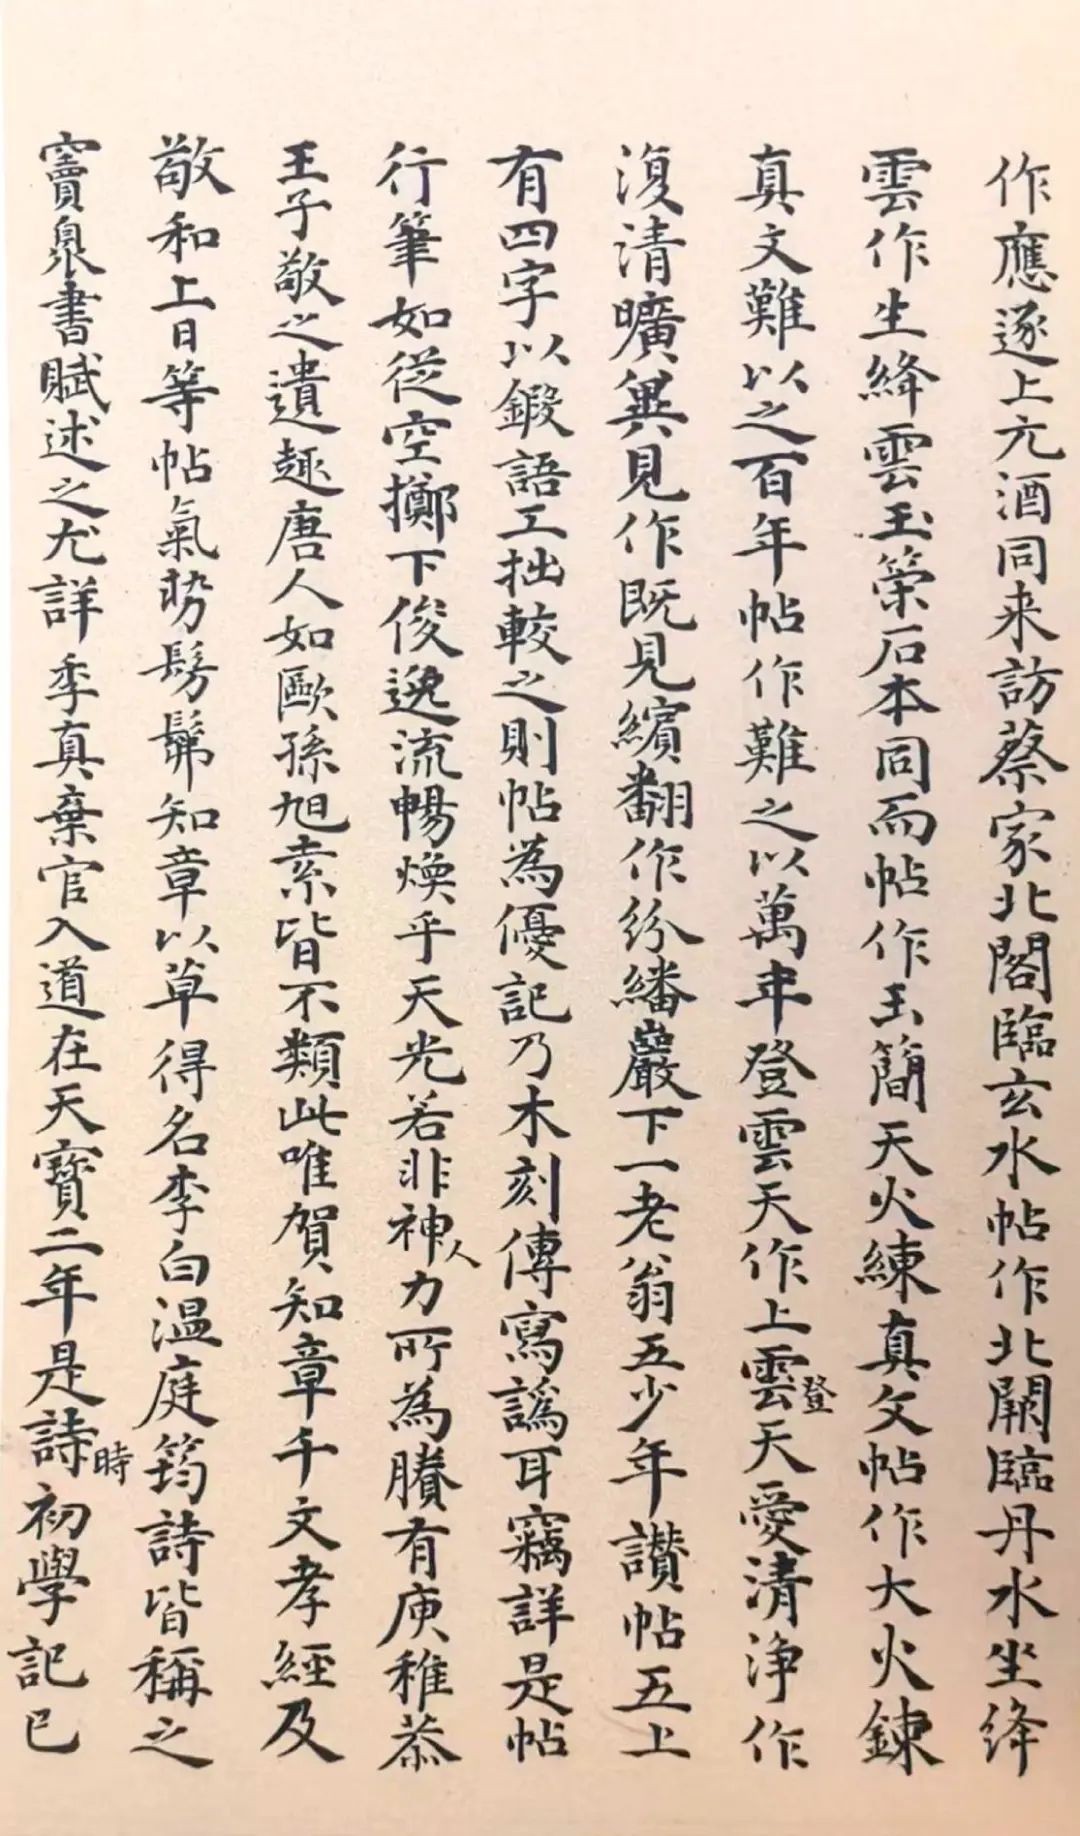 作應逐上元酒同来訪蔡家北閣臨玄水帖作北闕臨丹水坐絳
雲作生絳雲玉策石本同而帖作玉簡天火練真文帖作大火鍊
真文難以之百年帖作難之以萬年登雲天作上登雲天愛清淨作
復清曠異見作既見繽翻作紛繙巖下一老翁五少年讚帖五上
有四字以鍛語工拙較之則帖為優記乃木刻傳寫譌耳竊詳是帖
行筆如從空擲下俊逸流暢煥乎天光若非人神力所為賸有庾稚恭
王子敬之遺趣唐人如歐孫旭素皆不類此唯賀知章千文孝經及
敬和上日等帖氣勢髣髴知章以草得名李白温庭筠詩皆稱之
竇臮書賦述之尤詳季真棄官入道在天寶二年是詩時初學記已